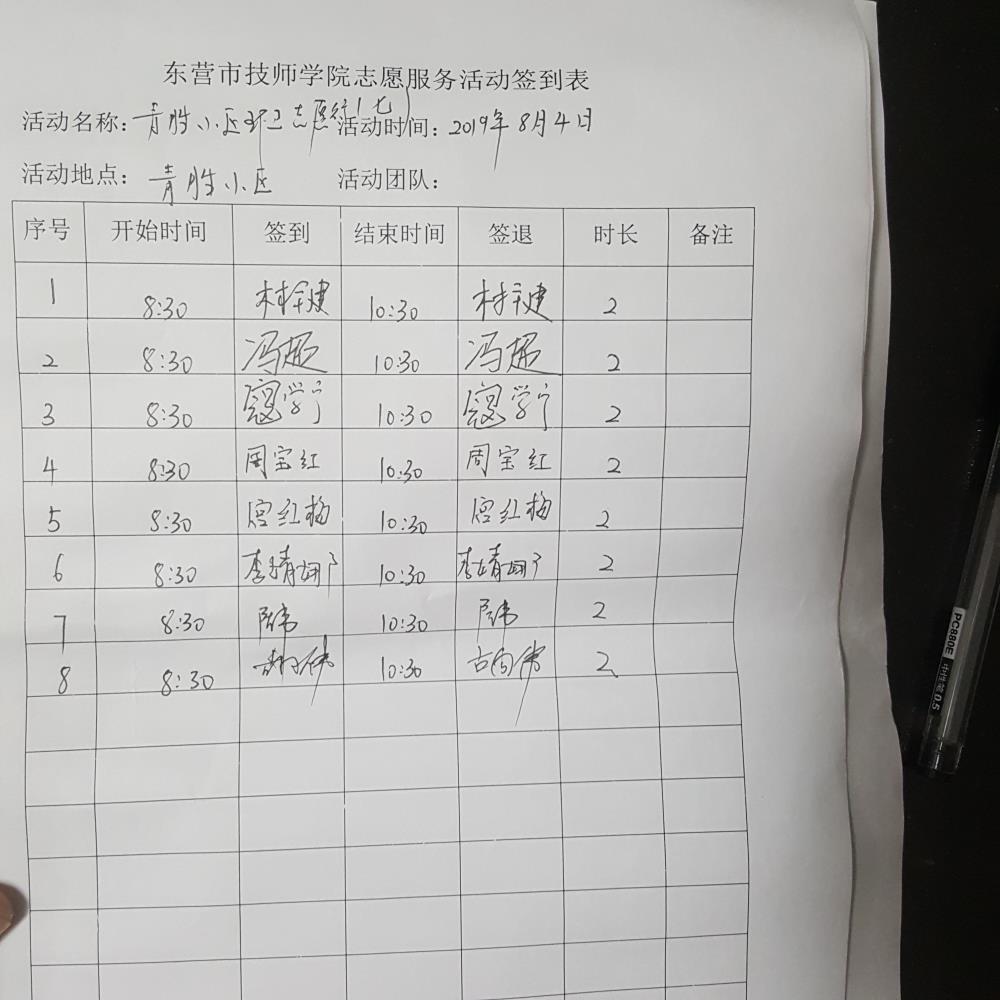 东营市技师学院志愿服务活动签到表
活动名称：青胜小区环卫志愿行(七) 活动时间：2019年8月4日
活动地点：青胜小区 活动团队：
序号 开始时间 签到 结束时间 签退 时长 备注
1 8:30 10:30 2
2 8:30 冯超 10:30 冯超 2
3 8:30 寇学宁 10:30 寇学宁 2
4 8:30 周宝红 10:30 周宝红 2
5 8:30 唐红梅 10:30 唐红梅 2
6 8:30 10:30 2
7 8:30 陈伟 10:30 陈伟 2
8 8:30 10:30 2
PC880E 中性笔 0.5